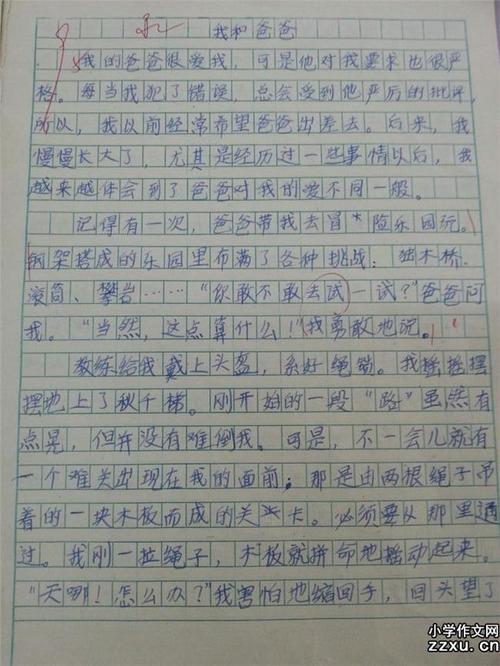 我和爸爸
我的爸爸很爱我，可是他对我要求也很严
格。每当我犯了错误，总会受到他严厉的批评，
所以，我以前经常希望爸爸出差去。后来，我
慢慢长大了，尤其是经历过一些事情以后，我
越来越体会到了爸爸对我的爱不同一般。
记得有一次，爸爸带我去冒险乐园玩。
钢架搭成的乐园里布满了各种挑战：独木桥、
滚筒、攀岩……“你敢不敢去试一试？”爸爸问
我。“当然，这点算什么！”我勇敢地说。
教练给我戴上头盔，系好绳锁。我摇摇摆
摆地上了秋千梯。刚开始的一段“路”虽然有
点晃，但并没有难倒我。可是，不一会儿就有
一个难关出现在我的面前；那是由两根绳子吊
着的一块木板而成的关卡。必须要从那里通
过。我刚一拉绳子，木板就拼命地摇动起来。
“天哪！怎么办？”我害怕地缩回手，回头望了
小学作文网
zzxu.cn